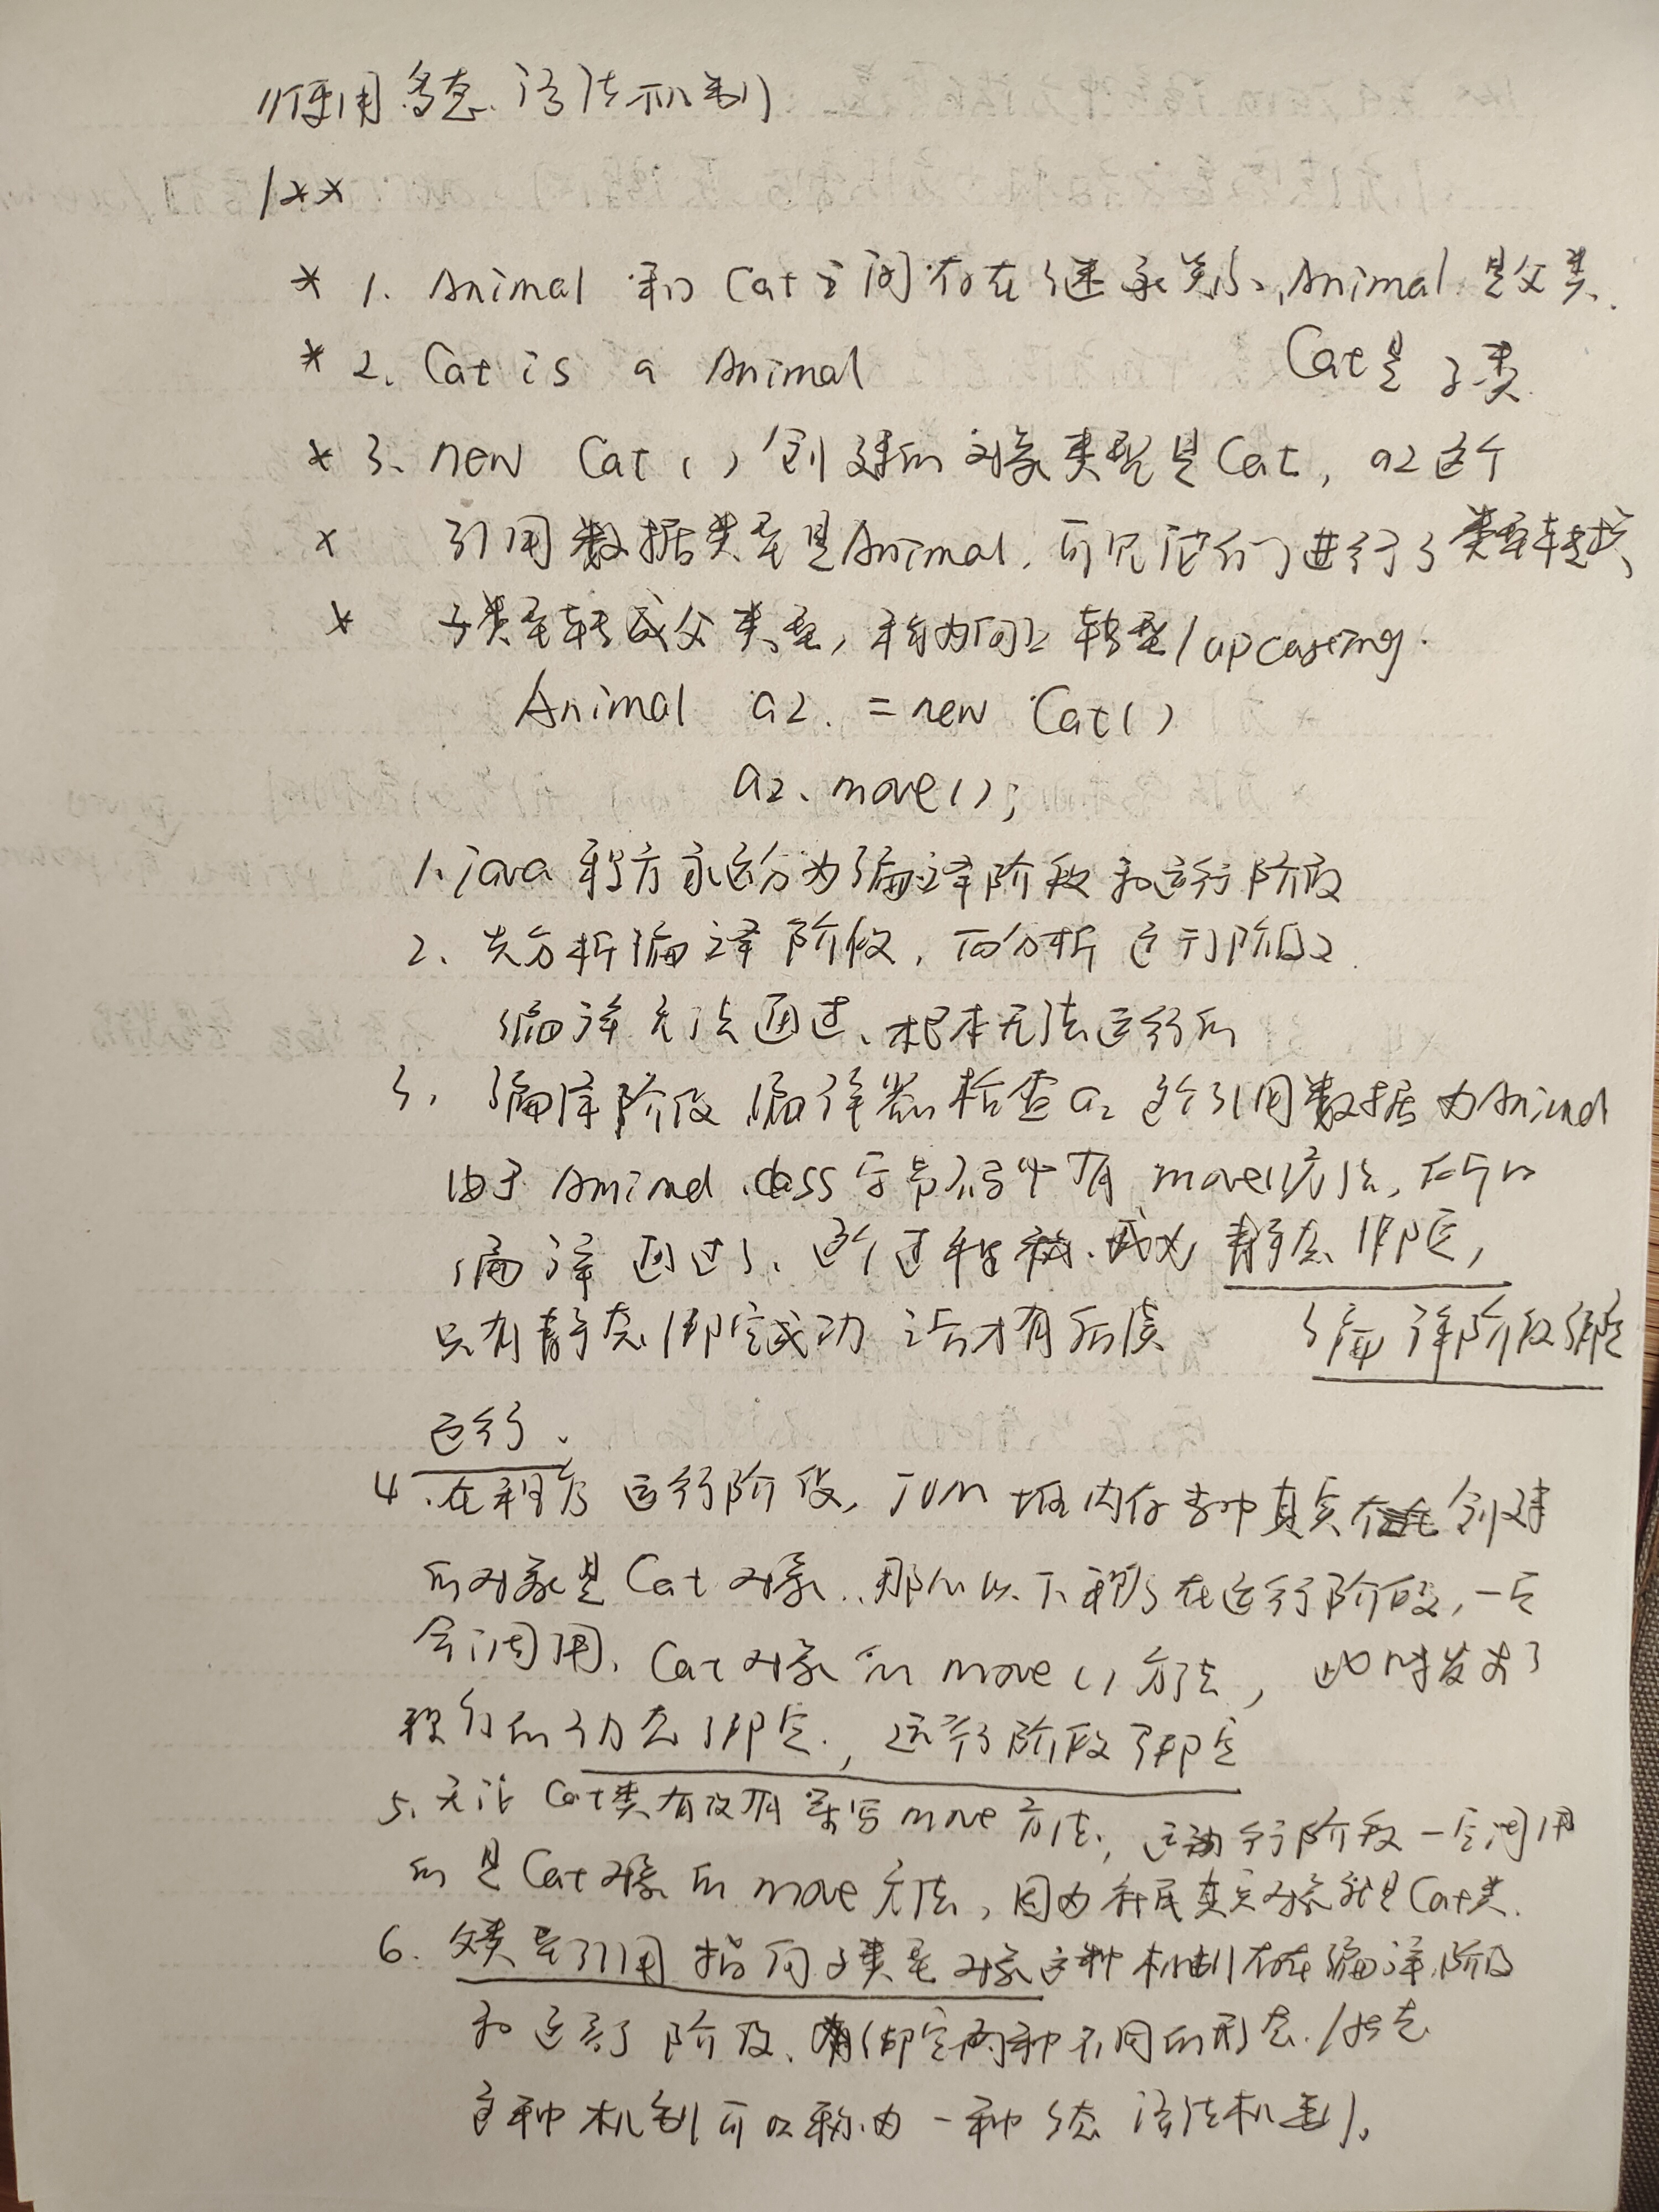 //使用多态语法机制
/**
* 1. Animal 和 Cat 之间存在继承关系, Animal 是父类.
Cat是子类
* 2. Cat is a Animal
* 3. new Cat() 创建的对象类型是Cat, a2这个
* 引用数据类型是Animal, 可见它们进行了类型转换,
* 子类型转成父类型, 称为向上转型/upcasting.
Animal a2 = new Cat()
a2.move();
1. java 程序永远分为编译阶段和运行阶段
2. 先分析编译阶段, 再分析运行阶段.
编译无法通过, 根本无法运行的
3. 编译阶段编译器检查a2这个引用数据为Animal
由于 Animal.class字节码中有 move()方法, 所以
编译通过了, 这个过程被成为静态绑定,
编译阶段绑定
只有静态绑定成功之后才有后续
运行.
4. 在程序运行阶段, JVM 堆内存当中真实创建
的对象是 Cat 对象, 那么以下程序在运行阶段, 一定
会调用 Cat对象的 move() 方法, 此时发生了
程序的动态绑定, 运行阶段绑定
5. 无论 Cat类有没有重写 move 方法, 运行阶段一定调用
的是 Cat对象的 move 方法, 因为底层真实对象就是Cat类.
6. 父类型引用指向子类型对象这种机制存在编译阶段
和运行阶段, 绑定两种不同的形态/状态
这种机制可以称为一种多态语法机制.